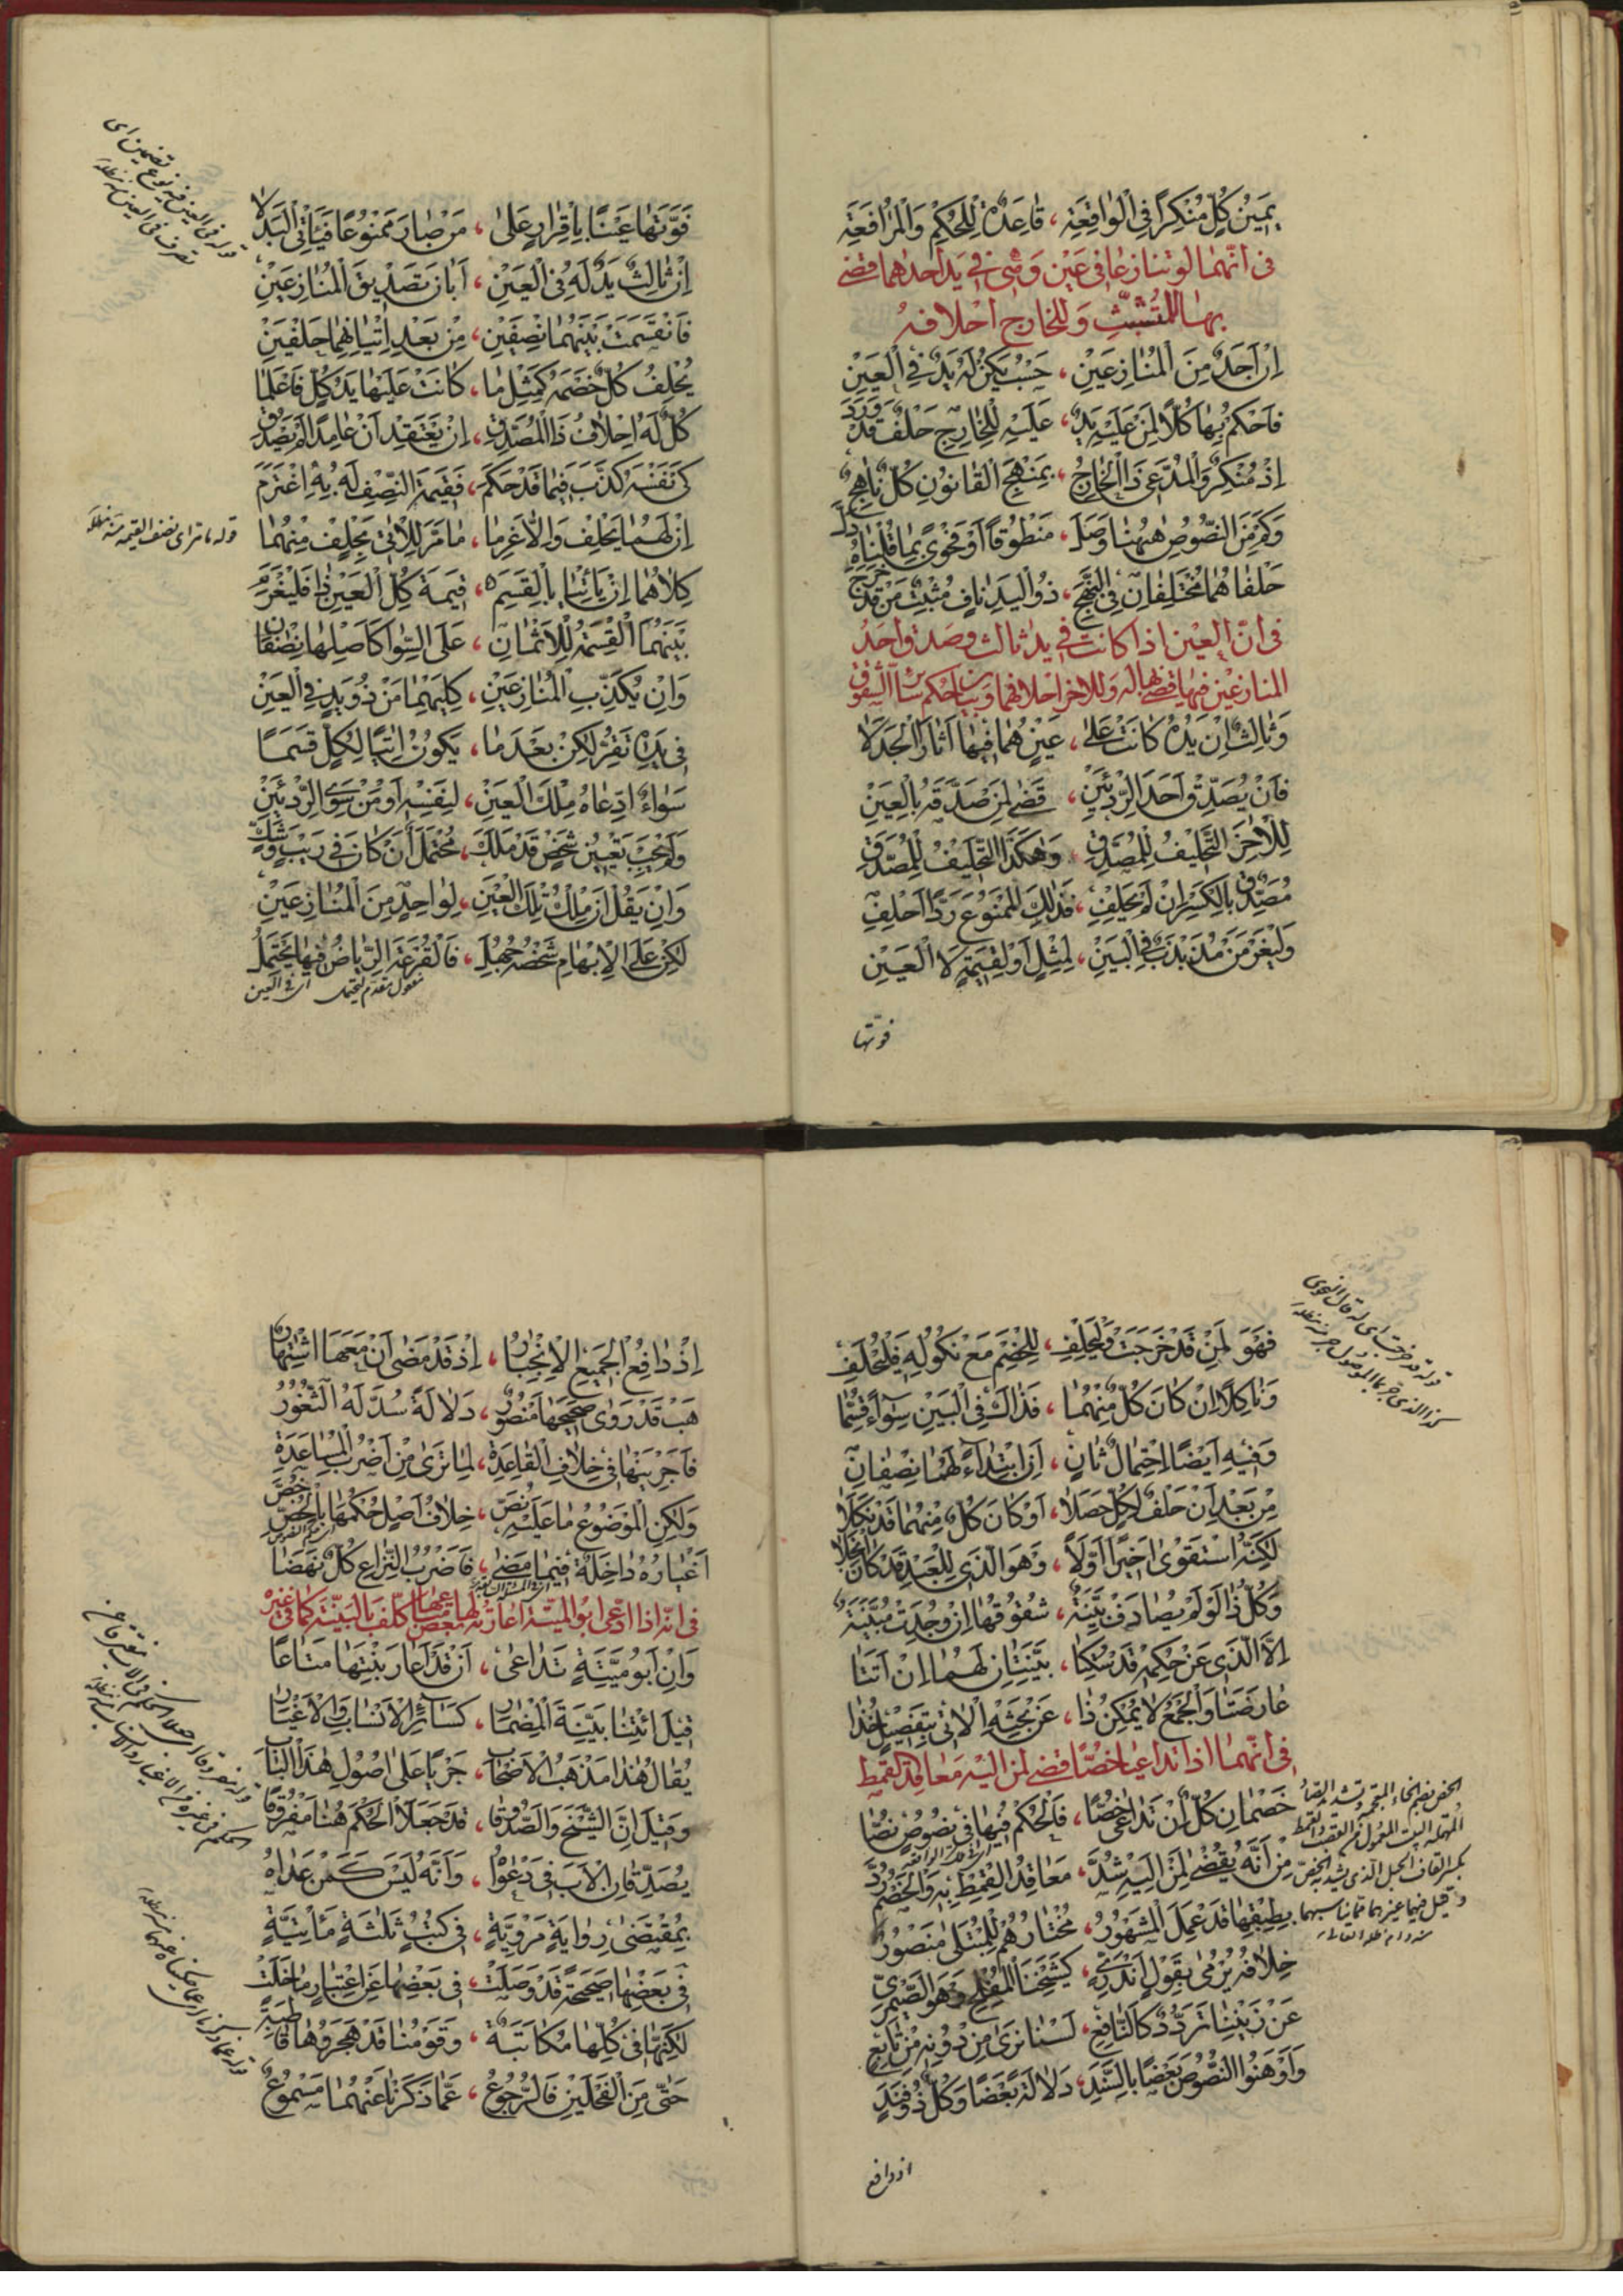 يَمِيْنُ كُلِّ مُنْكِرٍ فِي الْوٰاقِعَةِ ، قٰاعِدَةٌ لِلْحُكْمِ وَالْمُرٰافَعَةِ
فى انّهما لو تنازعا فى عين وهى فى يد احدهما قضى
بها للمتشبّث وللخارج احلافه
اِنْ اَحَدٌ مِنَ الْمُنٰازِعَيْنِ ، حَسْبُ يَكُنْ لَهُ يَدٌ فِي الْعَيْنِ
فَاحْكُمْ بِهٰا كُلّاً لِمَنْ عَلَيْهِ يَدٌ ، عَلَيْهِ لِلْخٰارِجِ حَلْفٌ قَدْ وَرَدَ
اِذْ مُنْكِرٌ وَالْمُدَّعِيْ ذَا الْخٰارِجُ ، بِمَنْهَجِ الْقٰانُونِ كُلٌّ نٰاهِجٌ
وَكَمْ مِنَ النُّصُوْصِ هٰهُنٰا وَصَلَ ، مَنْطُوْقاً اَوْ فَحْوًى بِمٰا قُلْنٰاهُ دَلَّ
حَلْفٰاهُمٰا مُخْتَلِفٰانِ فِي النَّهَجِ ، ذُو الْيَدِ نٰافٍ مُثْبِتٌ مَنْ قَدْ خَرَجَ
فى انّ العين اذا كانت فى يد ثالث وصدّق احد
المنازعين فيها قضى بها له وللاخر احلافهما وبيان حكم سائر الشقوق
وَثٰالِثٌ اِنْ يَدُهُ كٰانَتْ عَلىٰ ، عَيْنٍ هُمٰا فِيْهٰا اَثٰارَا الْجَدَلٰا
فَاَنْ يُصَدِّقْ اَحَدَ الرِّدْئَيْنِ ، قَضىٰ لِمَنْ صَدَّقَهُ بِالْعَيْنِ
لِلْاٰخِرِ التَّحْلِيْفُ لِلْمُصَدَّقِ ، وَهٰكَذَا التَّحْلِيْفُ لِلْمُصَدِّقِ
مُصَدِّقٌ بِالْكَسْرِ اِنْ لَمْ يَحْلِفِ ، فَذٰلِكَ الْمَمْنُوْعَ رَدًّا اَحْلِفِ
وَلْيَغْرَمَنْ مُذَبْذَبٌ فِي الْبَيْنِ ، لِمِثْلٍ اَوْ لِقِيْمَةٍ لَا الْعَيْنِ
فوّتها
فَوَّتَهٰا عَيْنًا بِاِقْرٰارٍ عَلىٰ ، مَنْ صٰارَ مَمْنُوْعًا فَيَأْتِى الْبَدَلٰا
اِنْ ثٰالِثٌ يَدٌ لَهُ فِى الْعَيْنِ ، اَبٰانَ تَصْدِيْقَ الْمُنٰازِعَيْنِ
فَانْقَسَمَتْ بَيْنَهُمٰا نِصْفَيْنِ ، مِنْ بَعْدِ اِتْيٰانِهِمٰا حَلْفَيْنِ
يُحْلِفُ كُلٌّ خَصْمَهُ كَمِثْلِ مٰا ، كٰانَتْ عَلَيْهٰا يَدُ كُلٍّ فَاعْلَمٰا
كُلٌّ لَهُ اِحْلٰافُ ذَا الْمُصَدِّقِ ، اِنْ يَعْتَقِدْ اَنْ عٰامِدًا لَمْ يَصْدُقِ
كَىْ نَفْسَهُ كَذَّبَ فِيمٰا قَدْ حَكَمَ ، فَقِيْمَةَ النِّصْفِ لَهُ بِهِ اغْتَرَمَ
اِنْ لَهُمٰا يَحْلِفْ وَاِلّٰا غَرِمٰا ، مٰا مَرَّ لِلْاٰتِىْ بِحَلْفٍ مِنْهُمٰا
قوله ما مرّ اى نصف القيمة منه مدّ ظلّه
كِلٰاهُمٰا اِنْ يَأْتِيٰا بِالْقَسَمِ ، قِيْمَةَ كُلِّ الْعَيْنِ ذٰا فَلْيَغْرَمِ
بَيْنَهُمَا الْقِسْمَةُ لِلْاَثْمٰانِ ، عَلَى السِّوٰا كَاَصْلِهٰا نِصْفٰانِ
وَاِنْ يُكَذِّبِ الْمُنٰازِعَيْنِ ، كِلَيْهِمٰا مَنْ ذُوْ يَدٍ فِي الْعَيْنِ
فِى يَدِهِ تَقِرُّ لٰكِنْ بَعْدَ مٰا ، يَكُوْنُ اٰتِيًا لِكُلٍّ قَسَمًا
سَوٰاءٌ ادِّعٰاهُ مِلْكَ الْعَيْنِ ، لِنَفْسِهِ اَوْ مَنْ سِوَى الرِّدْئَيْنِ
وَلَمْ يَجِبْ تَعْيِيْنُ شَخْصٍ قَدْ مَلَكَ ، مُحْتَمَلٌ اَنْ كٰانَ فِى رَيْبٍ وَشَكٍّ
وَاِنْ يَقُلْ اَنْ مِلْكُ تِلْكَ الْعَيْنِ ، لِوٰاحِدٍ مِنَ الْمُنٰازِعَيْنِ
لٰكِنْ عَلَى الْاِبْهٰامِ شَخْصُهُ جُهِلَ ، فَالْقُرْعَةَ الرِّيٰاضُ فِيهٰا يَحْتَمِلُ
مفعول مقدّم ليحتمل اى فى العين
فَهُوَ لِمَنْ قَدْ خَرَجَتْ وَلْيَحْلِفِ ، لِلْخَصْمِ مَعْ نُكُوْلِهِ فَلْيُحْلَفِ
وَنٰاكِلًا اِنْ كٰانَ كُلٌّ مِنْهُمٰا ، فَذٰاكَ فِى الْبَيْنِ سَوٰاءً قُسِمٰا
وَفِيْهِ اَيْضًا احْتِمٰالٌ ثٰانٍ ، اَنِ ابْتِدٰاءً لَهُمٰا نِصْفٰانِ
مِنْ بَعْدِ اَنْ حَلْفٌ لِكُلٍّ حَصَلٰا ، اَوْ كٰانَ كُلٌّ مِنْهُمٰا قَدْ نَكَلٰا
لٰكِنَّهُ اسْتَقْوىٰ اَخِيْرًا اَوَّلًا ، وَهُوَ الَّذِى لِلْعَبْدِ قَدْ كٰانَ انْجَلٰا
وَكُلُّ ذٰا لَوْ لَمْ يُصٰادَفْ بَيِّنَةٌ ، شُقُوْقُهٰا اِنْ وُجِدَتْ مُبَيَّنَةٌ
اِلَّا الَّذِى عَنْ حُكْمِهِ قَدْ سُكِتٰا ، بَيِّنَتٰانِ لَهُمٰا اِنْ اَتَتٰا
عٰارَضَتٰا وَالْجَمْعُ لٰا يُمْكِنُ ذٰا ، عَنْ بَحْثِهِ الْاٰتِى بِتَفْصِيْلٍ خُذٰا
فى انّهما اذا تداعيا خصّا قضى لمن اليه معاقد القمط
خَصْمٰانِ كُلٌّ اَنْ تَدٰاعىٰ خُصًّا ، فَالْحُكْمُ فِيْهٰا فِى نُصُوْصٍ نُصّٰا
مِنْ اَنَّهُ يُقْضىٰ لِمَنْ اِلَيْهِ شُدَّ ، مَعٰاقِدُ الْقِمْطِ بِهِ وَالْخَصْمُ رُدَّ
بِطِبْقِهٰا قَدْ عَمِلَ الْمَشْهُوْرُ ، مُخْتٰارُهُمْ لِلْمُبْتَلىٰ مَنْصُوْرٌ
خِلٰافُهُ يُرْمىٰ بِقَوْلٍ اَنْدَرِىٍّ ، كَشَيْخِنَا الْمُفْلِحِ وَهُوَ الصَّيْمَرِىُّ
عَنْ زَيْنِنٰا تَرَدُّدٌ كَالنّٰافِعِ ، لَسْنٰا نَرىٰ مِنْ دُوْنِهِ مِنْ تٰابِعٍ
وَاَوْهَنُوا النُّصُوْصَ بَعْضًا بِالسَّنَدِ ، دَلٰالَةً بَعْضًا وَكُلٌّ ذُوْ فَنَدٍ
اذ دافع
اِذْ دٰافِعُ الْجَمِيْعِ الْاِنْجِبٰارُ ، اِذْ قَدْ مَضىٰ اَنْ مَعَهَا اشْتِهٰارُ
هَبْ قَدْ رَوىٰ صَحِيْحَهٰا مَنْصُوْرٌ ، دَلٰالَةً سُدَّ لَهُ الثُّغُوْرُ
فَاَجْرِيَنْهٰا فِى خِلٰافِ الْقٰاعِدَةِ ، لِمٰا تَرىٰ مِنْ اَضْرُبِ الْمُسٰاعَدَةِ
وَلٰكِنِ الْمَوْضُوْعُ مٰا عَلَيْهِ نُصَّ ، خِلٰافُ اَصْلٍ حُكْمُهٰا بِالْخُصِّ خُصَّ
اَغْيٰارُهُ دٰاخِلَةٌ فِيْمٰا مَضىٰ ، فَاَضْرُبُ النِّزٰاعِ كُلٌّ نَهَضٰا
فى انّه اذا ادّعى ابو الميّتة اعارته لها بعض كلّف بالبيّنة كما فى غيره
وَاِنْ اَبُو مَيِّتَةٍ تَدٰاعىٰ ، اَنْ قَدْ اَعٰارَ بِنْتَهٰا مَتٰاعًا
قِيْلَ ائْتِنٰا بَيِّنَةَ الْمِضْمٰارِ ، كَسٰائِرِ الْاَنْسٰابِ وَالْاَغْيٰارِ
يُقٰالُ هٰذٰا مَذْهَبُ الْاَصْحٰابِ ، جَرْيًا عَلىٰ اُصُوْلِ هٰذَا الْبٰابِ
وَقِيْلَ اِنَّ الشَّيْخَ وَالصَّدُوْقَا ، قَدْ جَعَلَا الْحُكْمَ هُنٰا مَفْرُوْقًا
يُصَدِّقٰانِ الْاَبَ فِى دَعْوٰاهُ ، وَاَنَّهُ لَيْسَ كَمَنْ عَدٰاهُ
بِمُقْتَضىٰ رِوٰايَةٍ مَرْوِيَّةٍ ، فِى كُتُبٍ ثَلٰثَةٍ مَأْتِيَّةٍ
فِى بَعْضِهٰا صَحِيْحَةً قَدْ وَصَلَتْ ، فِى بَعْضِهٰا عَنِ اعْتِبٰارٍ مٰا خَلَتْ
لٰكِنَّهٰا فِى كُلِّهٰا مُكٰاتَبَةٌ ، وَقَوْمُنٰا قَدْ هَجَرُوْهٰا قٰاطِبَةً
حَتّىٰ مِنَ الْفَحْلَيْنِ فَالرُّجُوْعُ ، عَمّٰا ذَكَرْنٰا عَنْهُمٰا مَسْمُوْعٌ